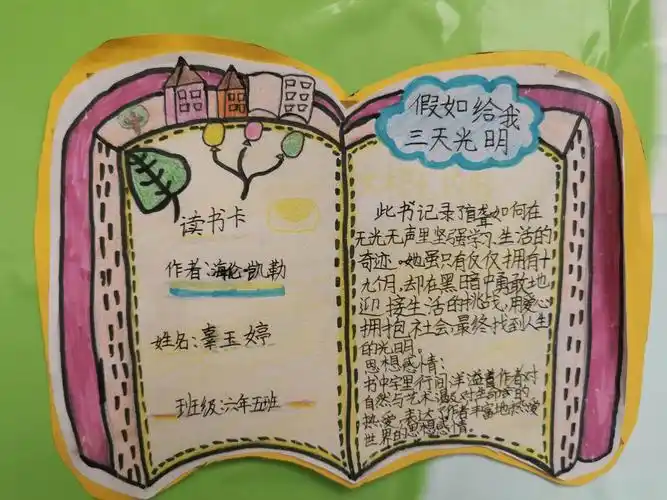 读书卡
作者:海伦·凯勒
姓名:辜玉婷
班级:六年五班
假如给我
三天光明
此书记录了盲聋如何在
无光无声里坚强学习生活的
奇迹。她虽只有仅仅拥有十
九个月,却在黑暗中勇敢地
迎接生活的挑战,用爱心
拥抱社会,最终找到人生
的光明。
思想感情:
书中字里行间洋溢着作者对
自然与艺术 对生命 的
热爱,表达了作者丰富地热爱
世界的思想感情。